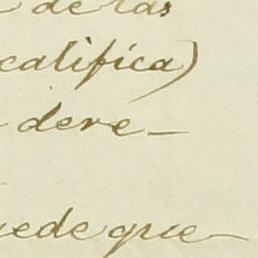 de las
califica)
dere-
uede que-